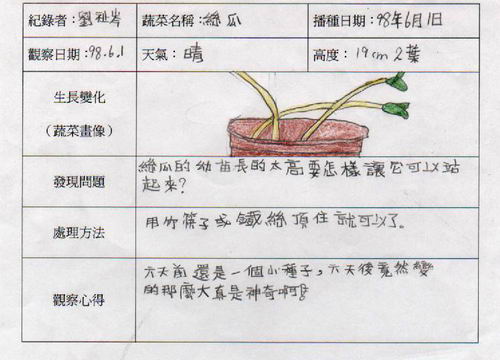 紀錄者：劉祉岑 蔬菜名稱：絲瓜 播種日期：98年6月1日
觀察日期：98.6.1 天氣：晴 高度：19cm 2葉
生長變化
（蔬菜畫像）
發現問題 絲瓜的幼苗長的太高要怎樣讓它可以站
起來？
處理方法 用竹筷子或鐵絲頂住就可以了。
觀察心得 六天前還是一個小種子，六天後竟然變
的那麼大真是神奇啊！